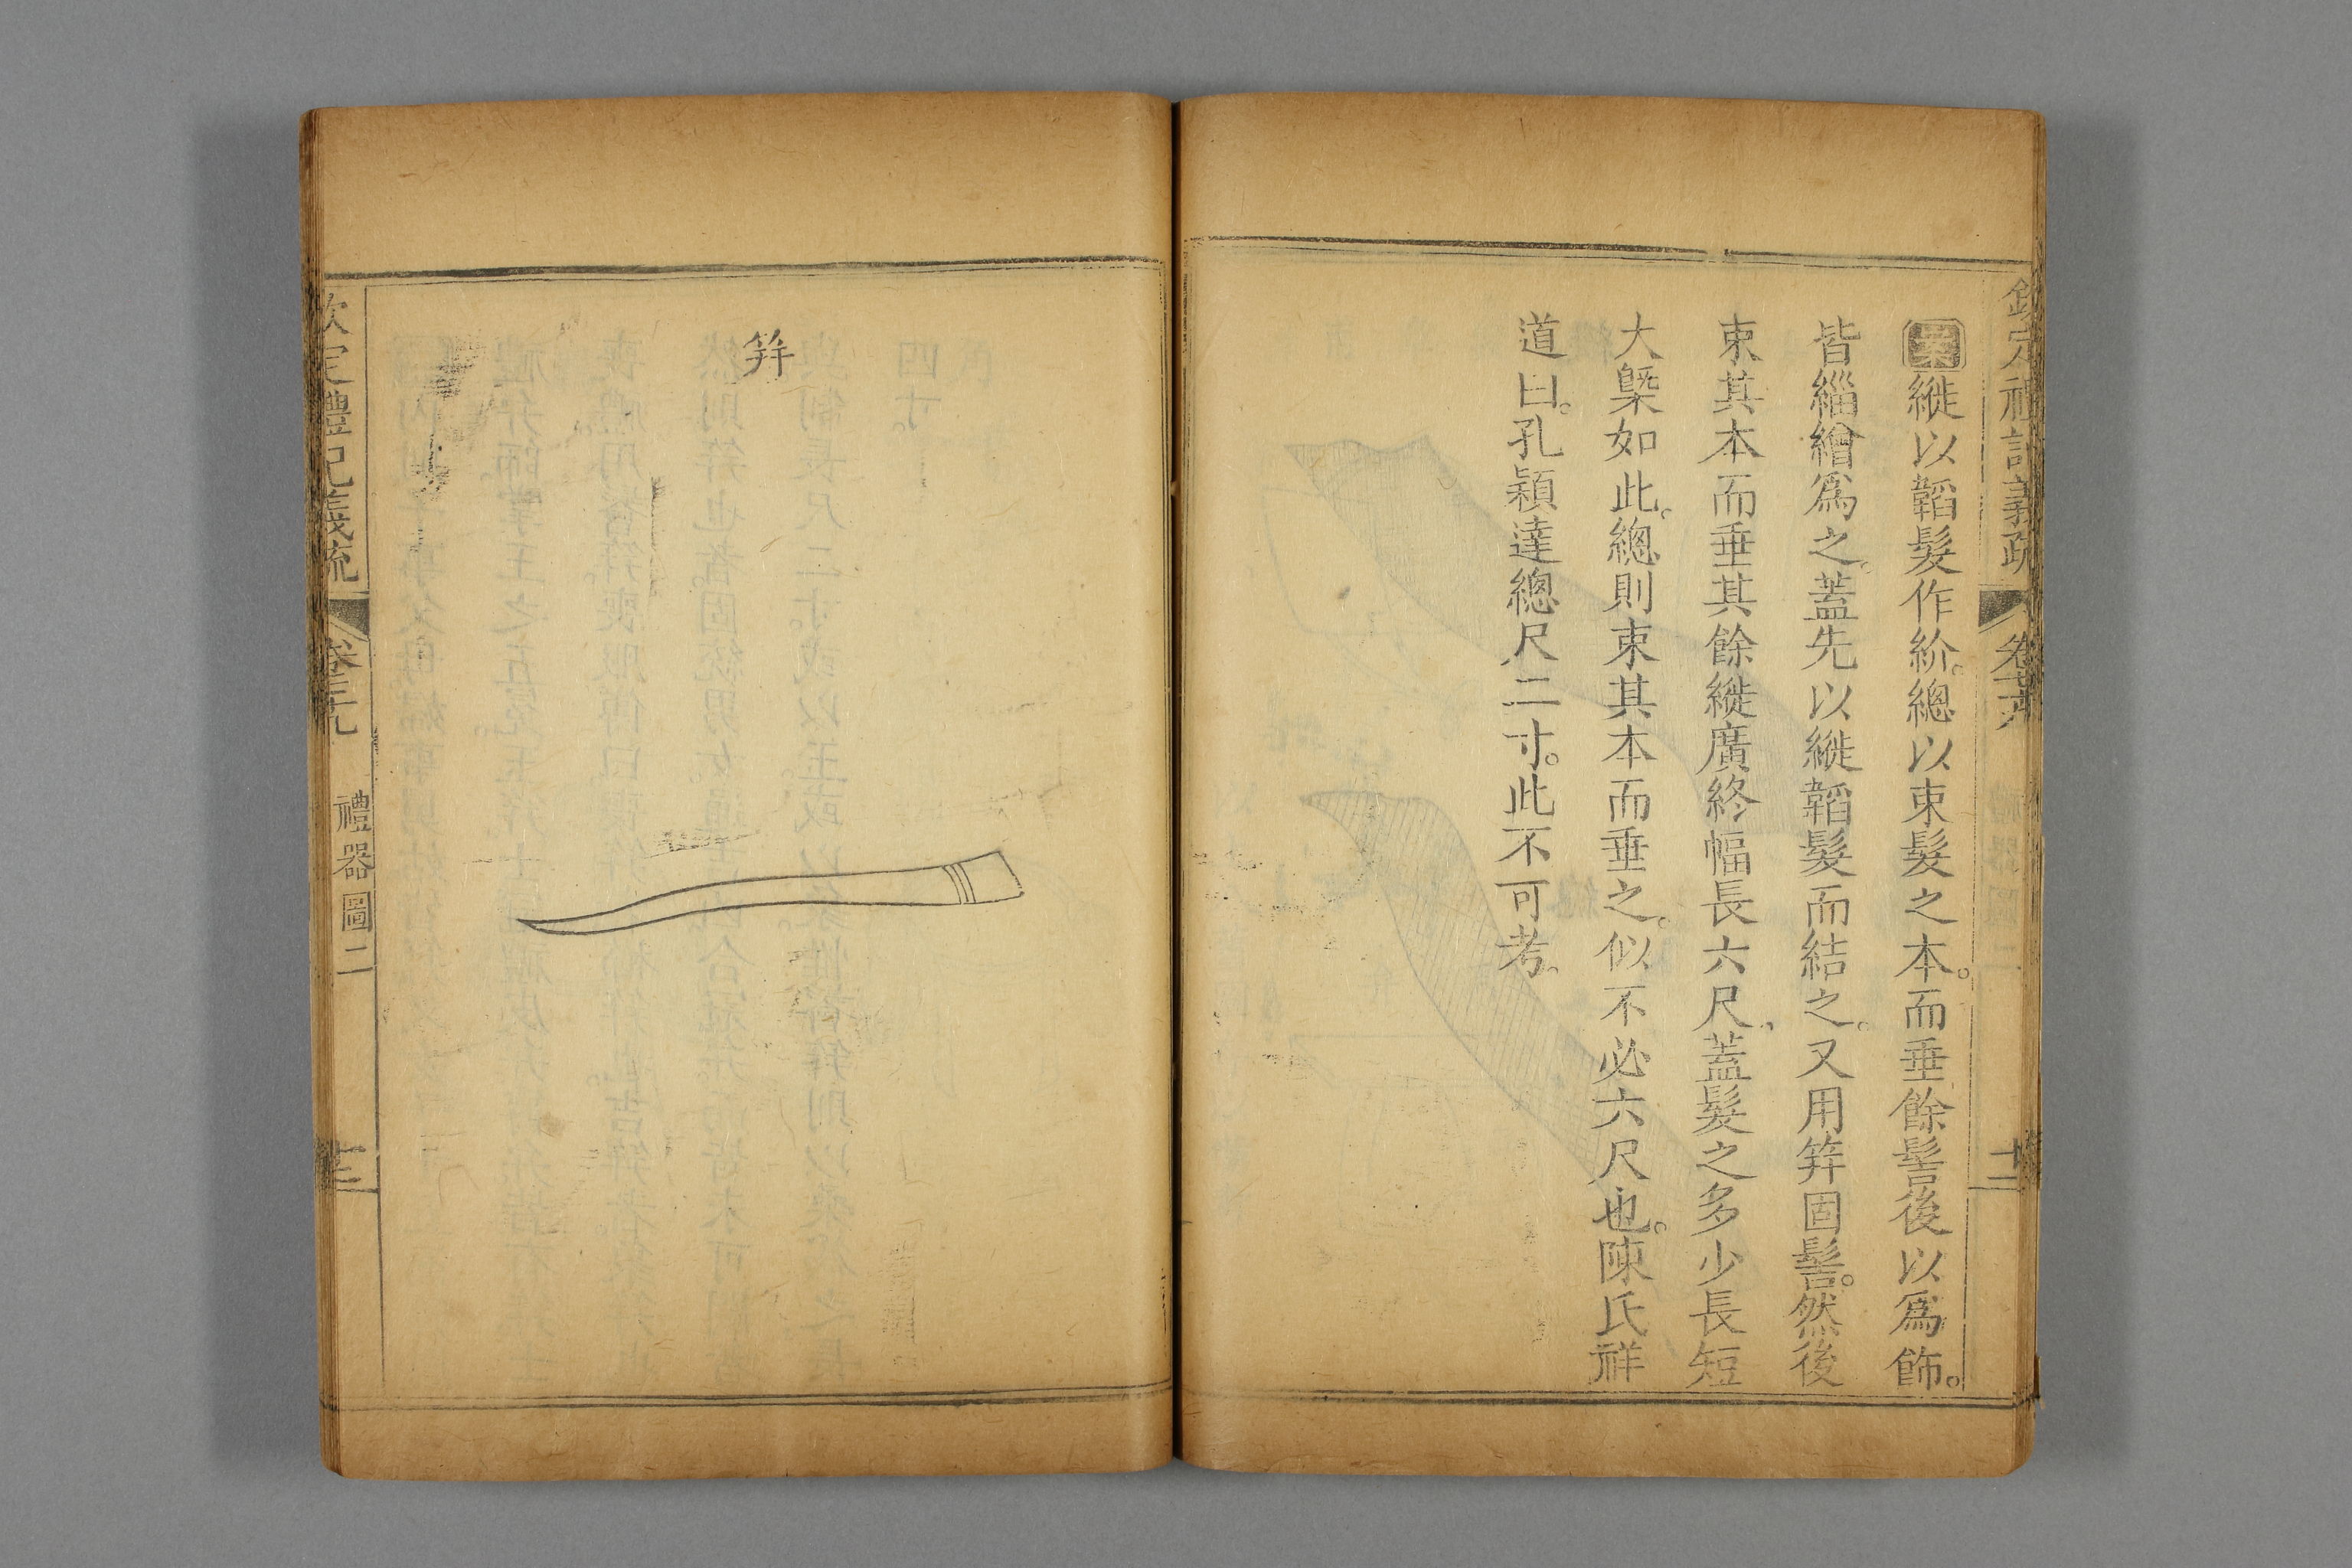 欽定禮記義疏 卷 十二
案縰以韜髮作紒。總以束髮之本。而垂餘髻後以為飾。
皆緇繒爲之。蓋先以縰韜髮而結之。又用笄固髻。然後
束其本而垂其餘縰廣終幅長六尺。蓋髮之多少長短
大槩如此。總則束其本而垂之。似不必六尺也。陳氏祥
道曰。孔穎達總尺二寸。此不可考。
笄
欽定禮記義疏 卷 禮器圖二 十三